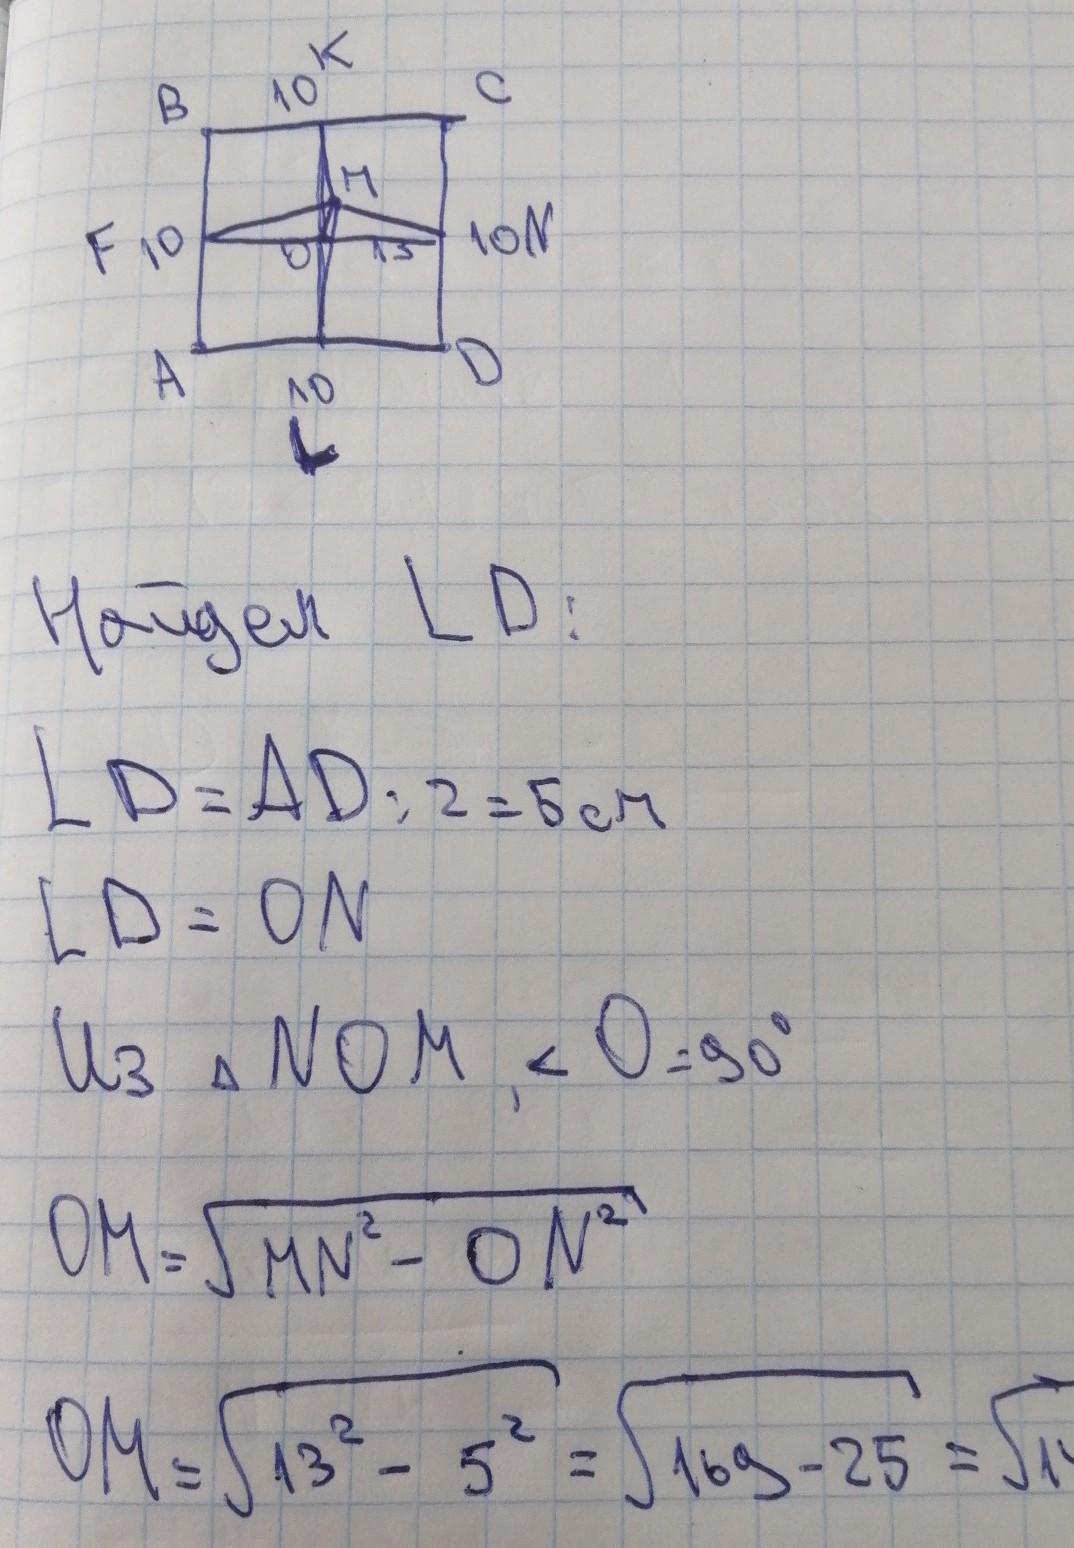 K
B 10 C
M
F 10 O 13 10 N
A D
10
L
Найдем LD:
LD = AD : 2 = 5 см
LD = ON
Из △ NOM, < O = 90°
OM = √MN² - ON²
OM = √13² - 5² = √169 - 25 = √14